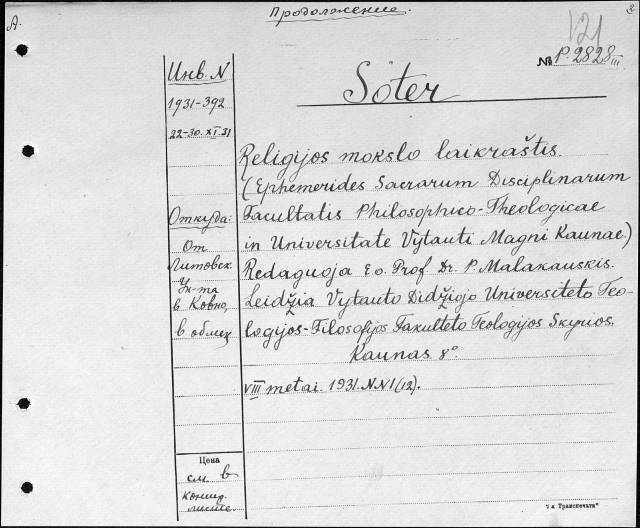 Продолжение.
А.
3
121
№ P.2828 III
Инв. N
1931-392
22-30.XI.31
Sōter
Religijos mokslo laikraštis.
(Ephemerides Sacrarum Disciplinarum
Facultatis Philosophico-Theologicae
in Universitate Vytauti Magni Kaunae.)
Redaguoja Eo. Prof. Dr. P. Malakauskis.
Leidžia Vytauto Didžiojo Universiteto Teo-
logijos-Filosofijos Fakulteto Teologijos Skyrios.
Kaunas 8°.
VIII metai. 1931. N.N 1(12).
Откуда:
От
Литовск.
Ун-та
в Ковно,
в обмен
Цена
см. в
лист.
"7-я Транспечать"